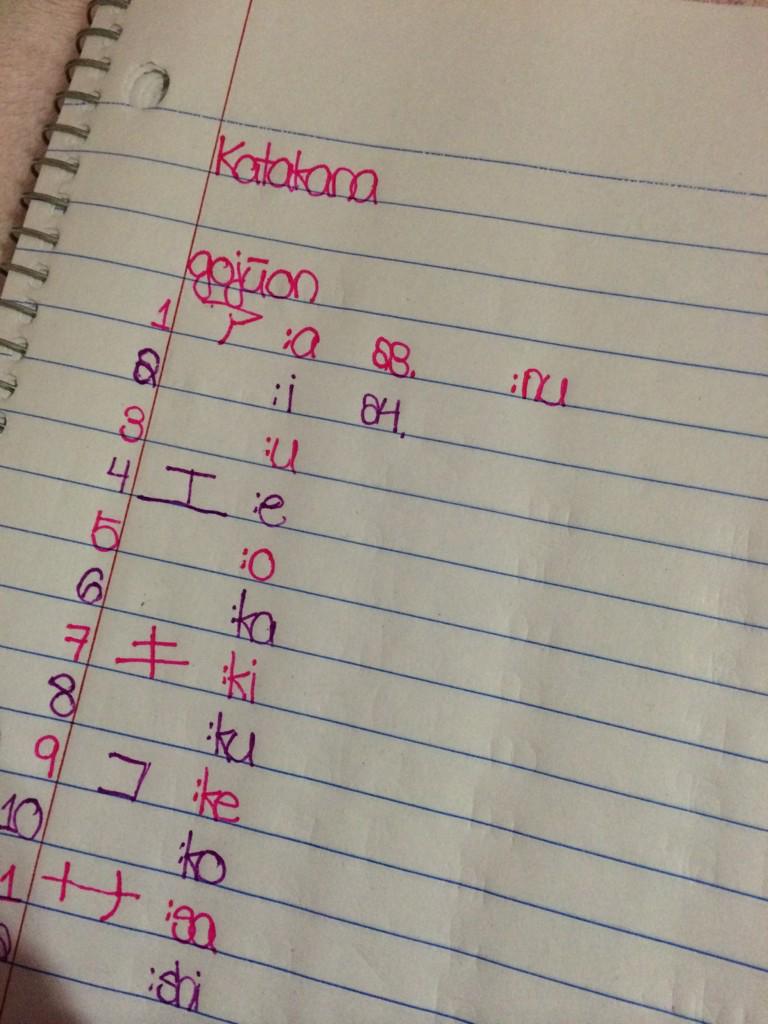 Katakana
gojūon
1 ア :a 23. :nu
2 :i 24.
3 :u
4 エ :e
5 :o
6 :ka
7 キ :ki
8 :ku
9 コ :ke
10 :ko
1 サ :sa
:shi